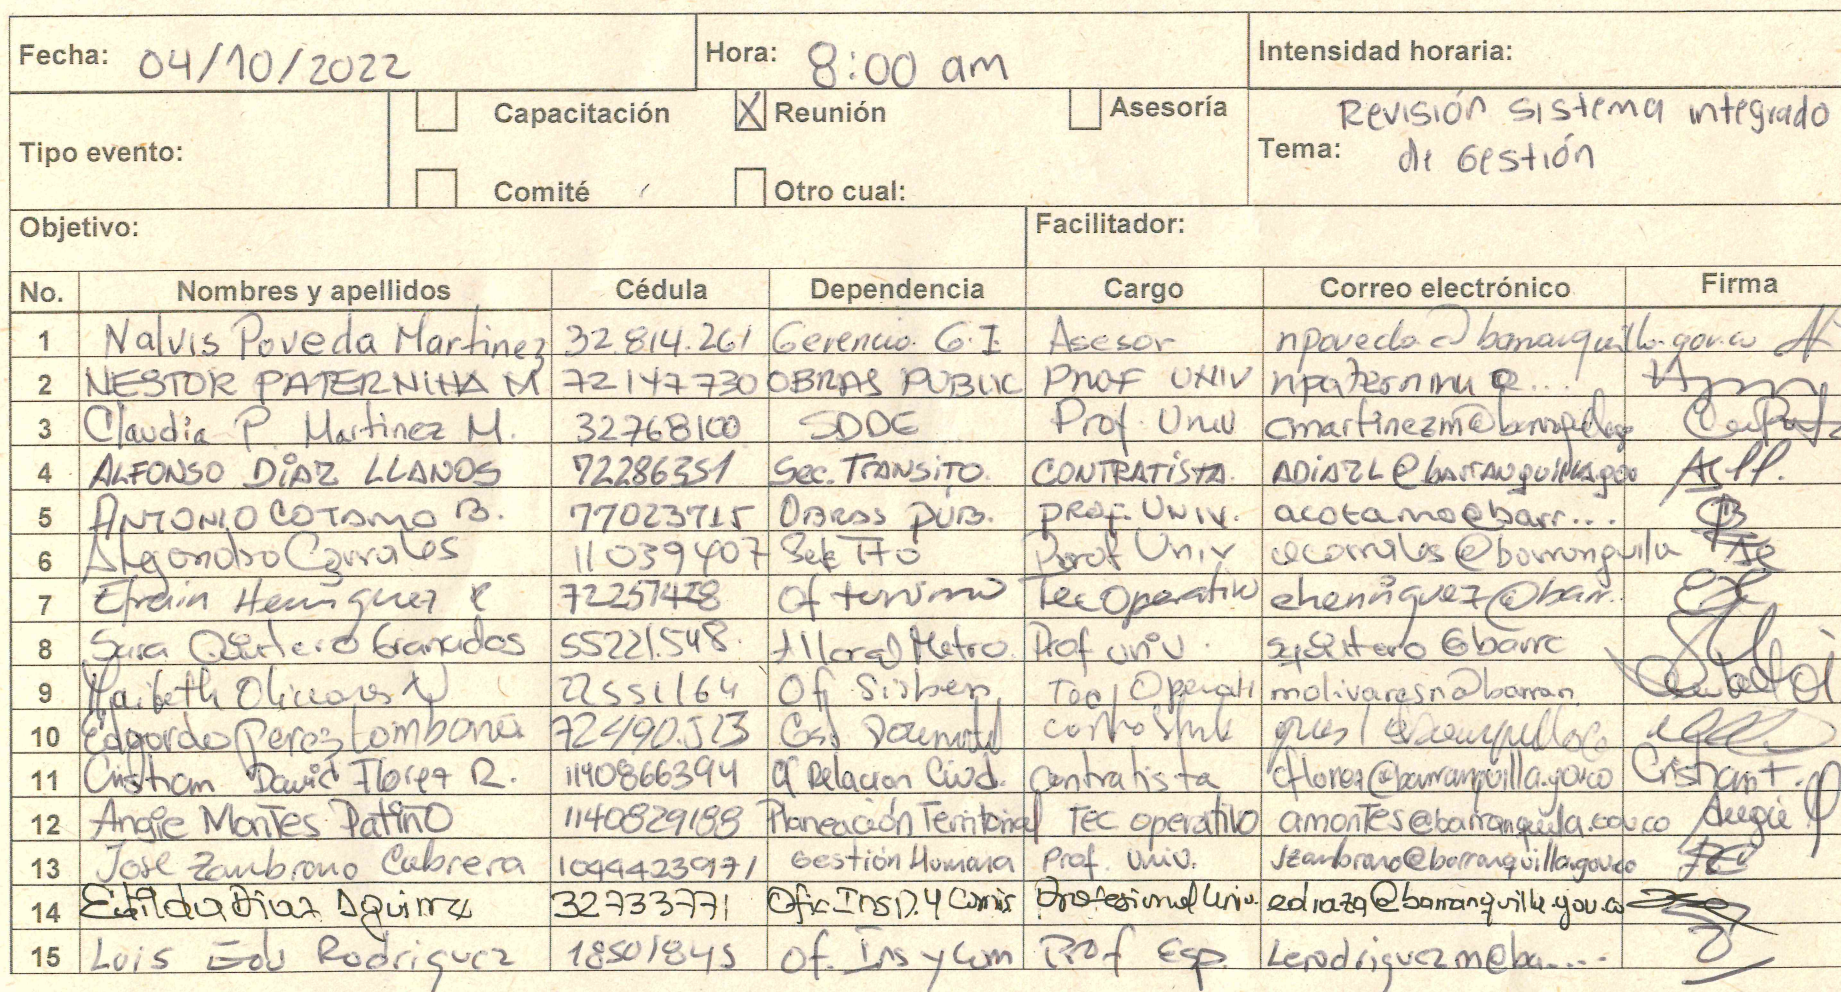 Fecha: 04/10/2022 Hora: 8:00 am Intensidad horaria:
Tipo evento: Capacitación X Reunión Asesoría Tema: Revisión sistema integrado
de Gestión
Comité Otro cual:
Objetivo: Facilitador:
No. Nombres y apellidos Cédula Dependencia Cargo Correo electrónico Firma
1 Nalvis Poveda Martinez 32.814.261 Gerencia G.I Asesor npoveda@barranquilla.gov.co
2 NESTOR PATERNINA M 72147730 OBRAS PUBLIC Prof UNIV npaternina@...
3 Claudia P. Martinez M. 32768100 SDDE Prof. Univ cmartinezm@barranquilla
4 ALFONSO DÍAZ LLANOS 72286351 Sec. TRANSITO. CONTRATÍSTA. ADIAZL@barranquilla.gov
5 ANTONIO COTAMO B. 77023715 OBRAS PUB. PROF. UNIV. acotamo@barr...
6 Corrales 11039407 Prof Univ
7 Efrain Henriquez 72257428 Of turismo Tec Operativo ehenriquez@barr.
8 Sara Quintero Granados 55221.548. Metro. Prof univ.
9 Olivares N 22551164 Of Sisben Operati molivaresn@barran
10 Edgardo Perez Lombana
11 Cristian David Florez R. 1140866394 Of Relacion Ciud. Contratista cflorez@barranquilla.gov.co Cristian F.
12 Angie Montes Patiño 1140829188 Planeación Territorial Tec operativo amontes@barranquilla.gov.co Angie
13 Jose Zambrano Cabrera 1044423971 Gestión Humana Prof. Univ. jzambrano@barranquilla.gov.co
14 Diaz Aguirre 32733771 Ofic. Insp. y Comis Profesional Univ. ediaza@barranquilla.gov.co
15 Luis Edu Rodriguez 18501845 Of. Ins y Com Prof Esp. Lerodriguezm@ba....